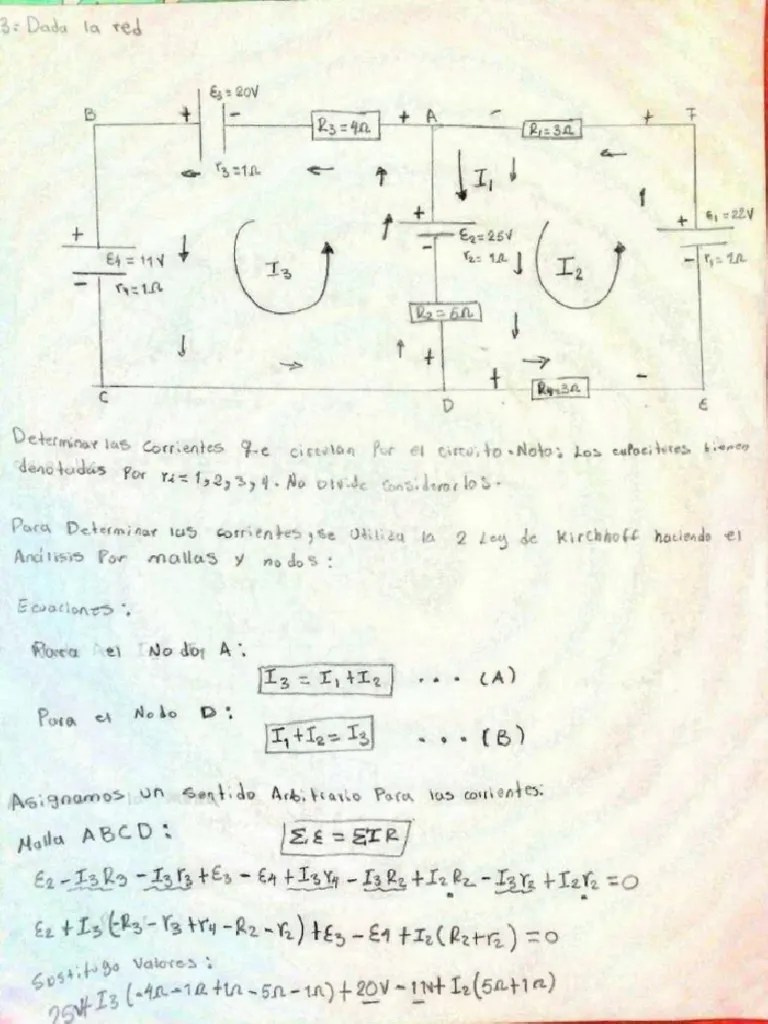 3: Dada la red
ε3=20V
B + - R3=4Ω + A - R1=3Ω + F
r3=1Ω
I1
+ ε4=11V - r4=1Ω
I3
+ ε2=25V - r2=1Ω
I2
+ ε1=22V - r1=1Ω
R2=5Ω
+ + R4=3Ω -
C D E
Determinar las corrientes que circulan por el circuito. Nota: Los capacitores tienen
denotadas por ri=1,2,3,4. No olvide considerarlos.
Para Determinar las corrientes, se utiliza la 2 Ley de Kirchhoff haciendo el
Análisis Por mallas y nodos:
Ecuaciones:
Para el Nodo A:
I3 = I1+I2 ... (A)
Para el Nodo D:
I1+I2=I3 ... (B)
Asignamos un sentido Arbitrario Para las corrientes.
Malla ABCD: Σε=ΣIR
ε2-I3R3-I3r3+ε3-ε4+I3r4-I3R2+I2R2-I3r2+I2r2=0
ε2+I3(-R3-r3+r4-R2-r2)+ε3-ε4+I2(R2+r2)=0
Sustituyo Valores:
25V+I3(-4Ω-1Ω+1Ω-5Ω-1Ω)+20V-11V+I2(5Ω+1Ω)